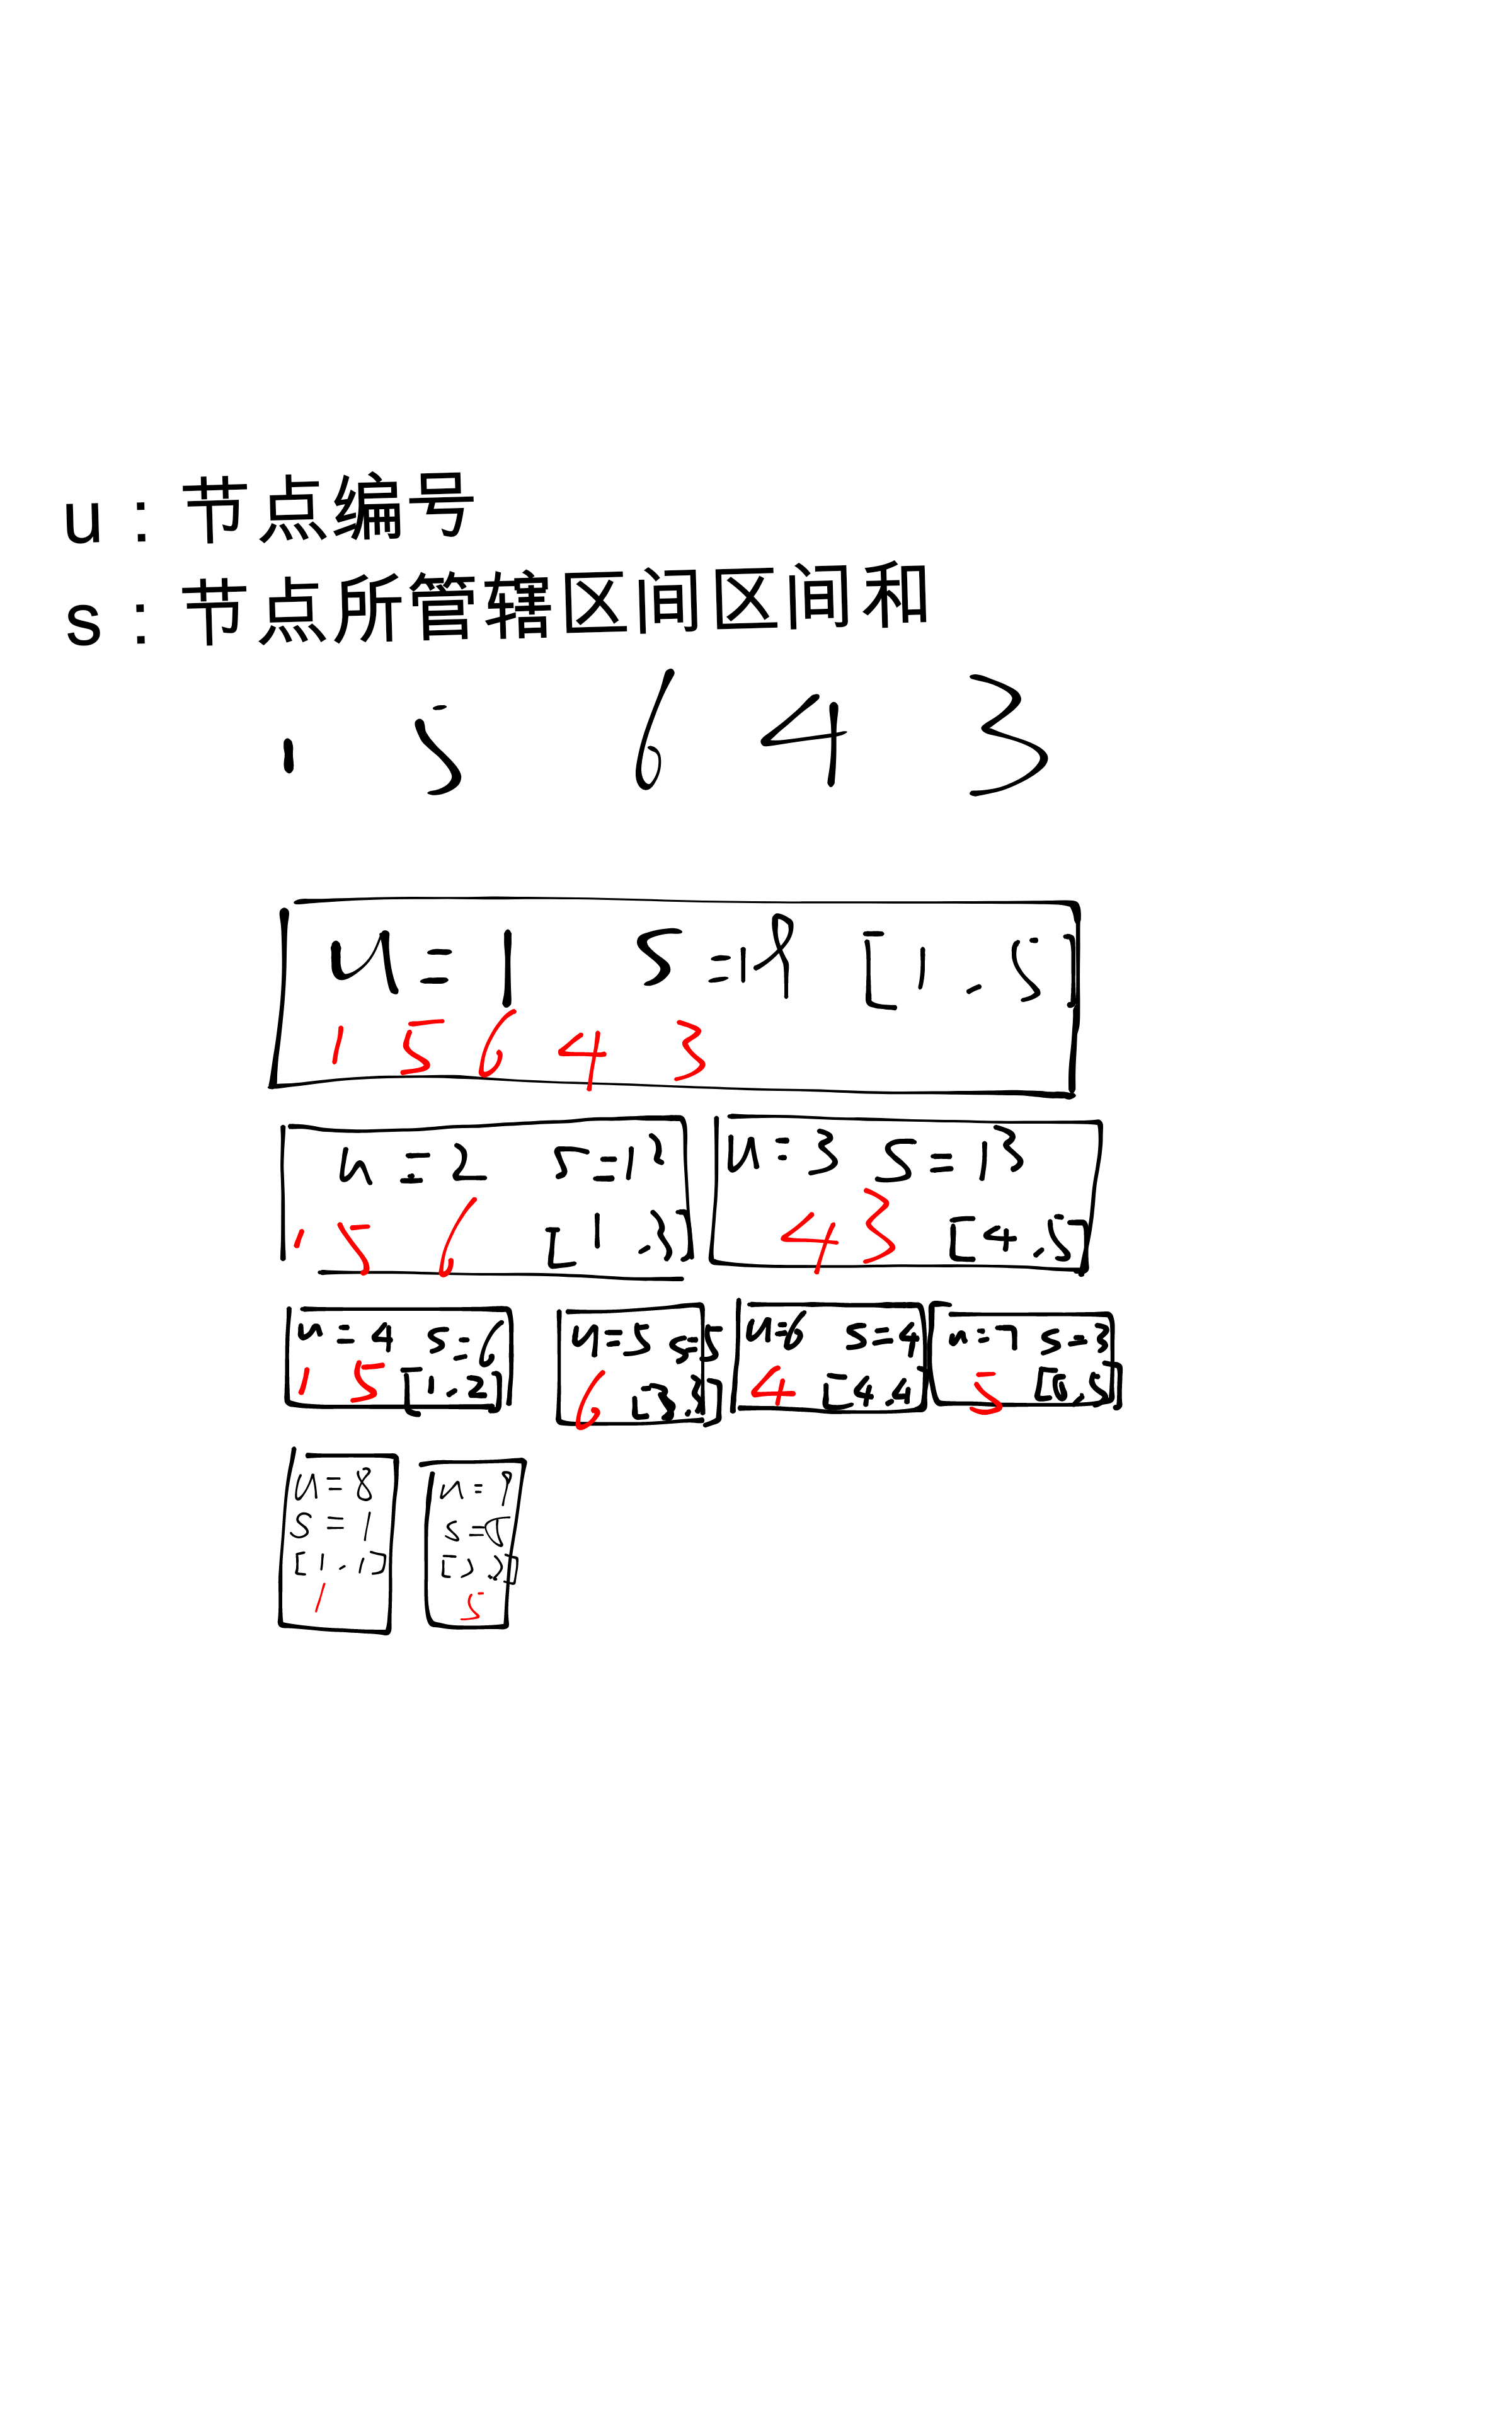 u：节点编号
s：节点所管辖区间区间和
1 5 6 4 3
u=1 s=19 [1,5]
1 5 6 4 3
u=2 s=12 u=3 s=13
1 5 6 [1,3] 4 3 [4,5]
u=4 s=6 u=5 s=5 u=6 s=4 u=7 s=3
1 5 [1,2] 6 [3,3] 4 [4,4] 5 [5,5]
u=8 u=9
s=1 s=5
[1,1]
1 5